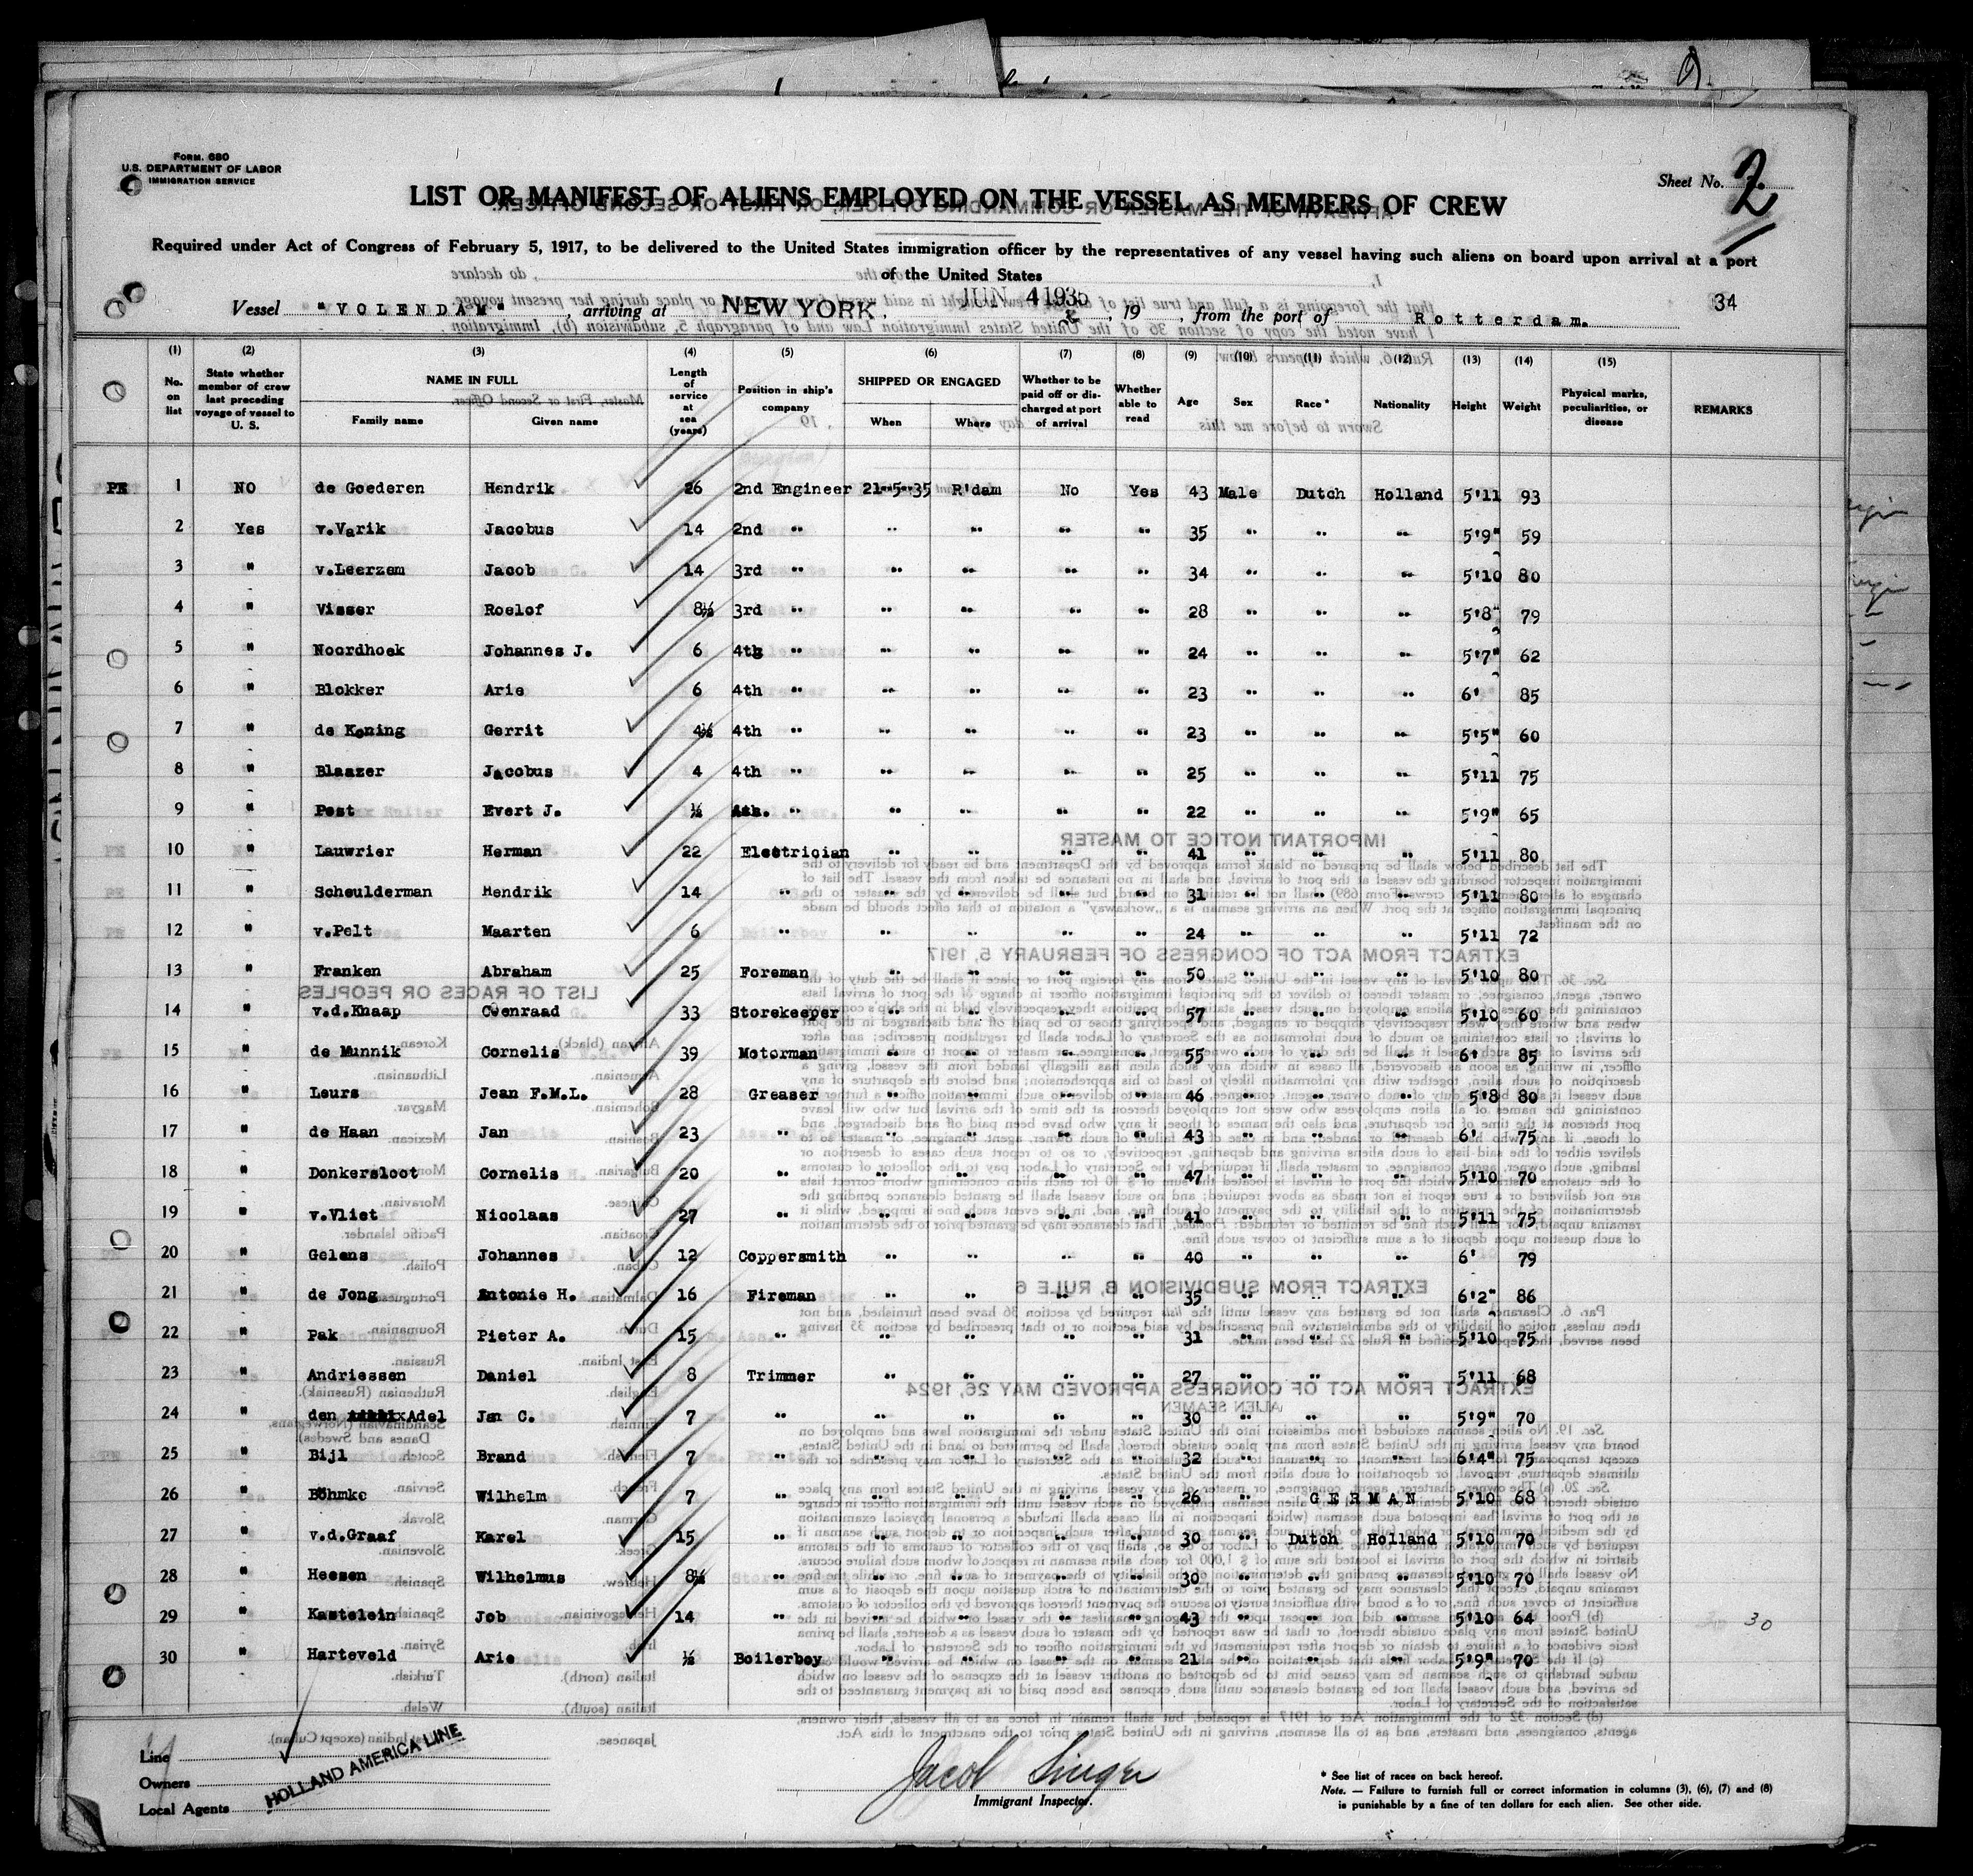 FORM. 680
U.S. DEPARTMENT OF LABOR
IMMIGRATION SERVICE
Sheet No. 2
LIST OR MANIFEST OF ALIENS EMPLOYED ON THE VESSEL AS MEMBERS OF CREW
Required under Act of Congress of February 5, 1917, to be delivered to the United States immigration officer by the representatives of any vessel having such aliens on board upon arrival at a port
of the United States
Vessel "VOLENDAM", arriving at NEW YORK. JUN 4 1935, 19 , from the port of Rotterdam. 34
(1) (2) (3) (4) (5) (6) (7) (8) (9) (10) (11) (12) (13) (14) (15)
No. on list State whether member of crew last preceding voyage of vessel to U. S. NAME IN FULL Family name Given name Length of service at sea (years) Position in ship's company SHIPPED OR ENGAGED When Where Whether to be paid off or discharged at port of arrival Whether able to read Age Sex Race * Nationality Height Weight Physical marks, peculiarities, or disease REMARKS
PE 1 NO de Goederen Hendrik 26 2nd Engineer 21-5-35 R'dam No Yes 43 Male Dutch Holland 5'11 93
2 Yes v.Varik Jacobus 14 2nd " " " " " 35 " " " 5'9" 59
3 " v.Leerzem Jacob 14 3rd " " " " " 34 " " " 5'10 80
4 " Visser Roelof 8½ 3rd " " " " " 28 " " " 5'8" 79
5 " Noordhoek Johannes J. 6 4th " " " " " 24 " " " 5'7" 62
6 " Blokker Arie 6 4th " " " " " 23 " " " 6' 85
7 " de Koning Gerrit 4½ 4th " " " " " 23 " " " 5'5" 60
8 " Blaazer Jacobus 4 4th " " " " " 25 " " " 5'11 75
9 " Post Evert J. ½ " " " " " 22 " " " 5'9" 65
10 " Lauwrier Herman 22 Electrician " " " " 41 " " " 5'11 80
11 " Scheulderman Hendrik 14 " " " " " 31 " " " 5'11 80
12 " v.Pelt Maarten 6 " " " " " 24 " " " 5'11 72
13 " Franken Abraham 25 Foreman " " " " 50 " " " 5'10 80
14 " v.d.Knaap Coenraad 33 Storekeeper " " " " 57 " " " 5'10 60
15 " de Munnik Cornelis 39 Motorman " " " " 55 " " " 6' 85
16 " Leurs Jean F.M.L. 28 Greaser " " " " 46 " " " 5'8 80
17 " de Haan Jan 23 " " " " " 43 " " " 6' 75
18 " Donkersloot Cornelis 20 " " " " " 47 " " " 5'10 70
19 " v.Vliet Nicolaas 27 " " " " " 41 " " " 5'11 75
20 " Gelens Johannes 12 Coppersmith " " " " 40 " " " 6' 79
21 " de Jong Antonie H. 16 Fireman " " " " 35 " " " 6'2" 86
22 " Pak Pieter A. 15 " " " " " 31 " " " 5'10 75
23 " Andriessen Daniel 8 Trimmer " " " " 27 " " " 5'11 68
24 " den Adel Jan C. 7 " " " " " 30 " " " 5'9" 70
25 " Bijl Brand 7 " " " " " 32 " " " 6'4" 75
26 " Böhmke Wilhelm 7 " " " " " 26 " GERMAN 5'10 68
27 " v.d.Graaf Karel 15 " " " " " 30 " Dutch Holland 5'10 70
28 " Heesen Wilhelmus 8½ " " " " " 30 " " " 5'10 70
29 " Kastelein Job 14 " " " " " 43 " " " 5'10 64 30
30 " Harteveld Arie ½ Boilerboy " " " " 21 " " " 5'9" 70
Line
Owners
Local Agents
HOLLAND AMERICA LINE
Jacob Singer
Immigrant Inspector.
* See list of races on back hereof.
Note. — Failure to furnish full or correct information in columns (3), (6), (7) and (8)
is punishable by a fine of ten dollars for each alien. See other side.